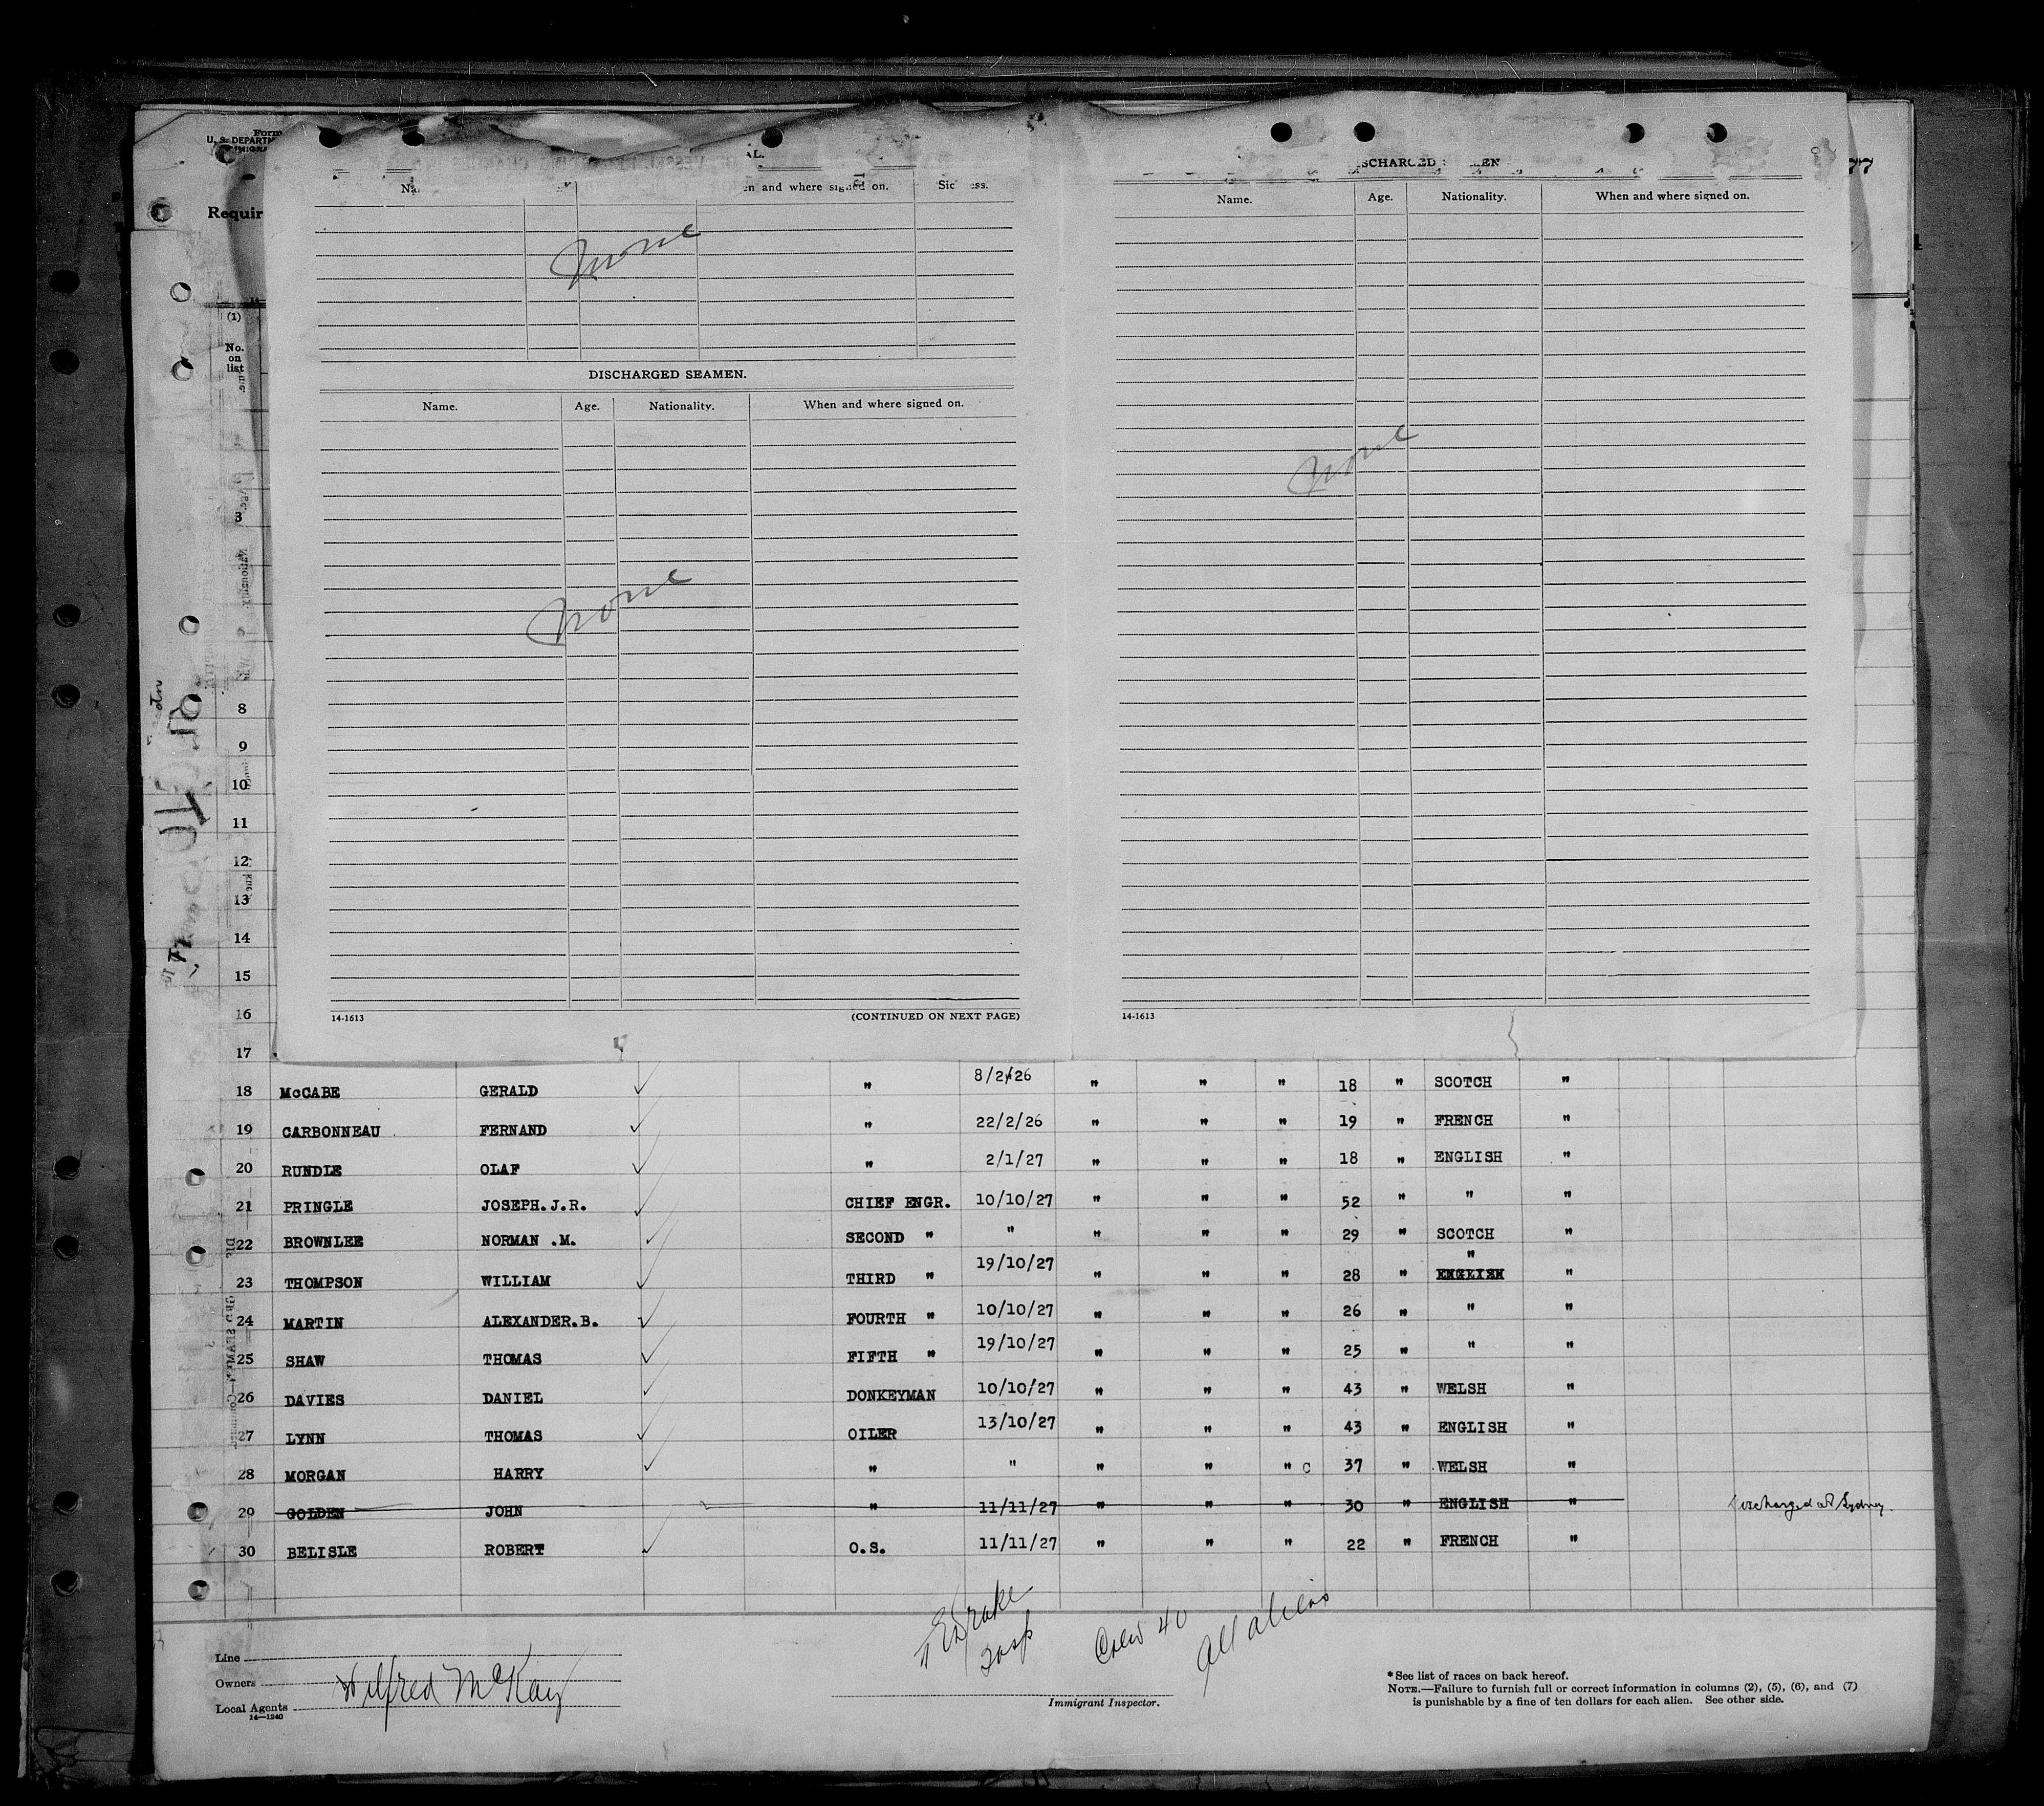 Form
U. S. DEPARTM
IMIGRA
Requir
77
AL.
en and where signed on.
DISCHARGED SEAMEN.
Name. Age. Nationality. When and where signed on.
None
DISCHARGED SEAMEN.
Name. Age. Nationality. When and where signed on.
None
None
14-1613 (CONTINUED ON NEXT PAGE)
14-1613
(1)
No.
on
list
3
8
9
10
11
12
13
14
15
16
17
18 McCABE GERALD ✓ " 8/2/26 " " " 18 " SCOTCH "
19 CARBONNEAU FERNAND ✓ " 22/2/26 " " " 19 " FRENCH "
20 RUNDLE OLAF ✓ " 2/1/27 " " " 18 " ENGLISH "
21 PRINGLE JOSEPH.J.R. ✓ CHIEF ENGR. 10/10/27 " " " 52 " " "
22 BROWNLEE NORMAN .M. ✓ SECOND " " " " " 29 " SCOTCH "
23 THOMPSON WILLIAM ✓ THIRD " 19/10/27 " " " 28 " ENGLISH " "
24 MARTIN ALEXANDER.B. ✓ FOURTH " 10/10/27 " " " 26 " " "
25 SHAW THOMAS ✓ FIFTH " 19/10/27 " " " 25 " " "
26 DAVIES DANIEL ✓ DONKEYMAN 10/10/27 " " " 43 " WELSH "
27 LYNN THOMAS ✓ OILER 13/10/27 " " " 43 " ENGLISH "
28 MORGAN HARRY ✓ " " " " " c 37 " WELSH "
29 GOLDEN JOHN " 11/11/27 " " " 30 " ENGLISH " Discharged at Sydney.
30 BELISLE ROBERT ✓ O.S. 11/11/27 " " " 22 " FRENCH "
Drake
Insp
Crew 40
All aliens
Line
Owners
Local Agents
Wilfred McKay
14—1240
Immigrant Inspector.
*See list of races on back hereof.
NOTE.—Failure to furnish full or correct information in columns (2), (5), (6), and (7)
is punishable by a fine of ten dollars for each alien. See other side.